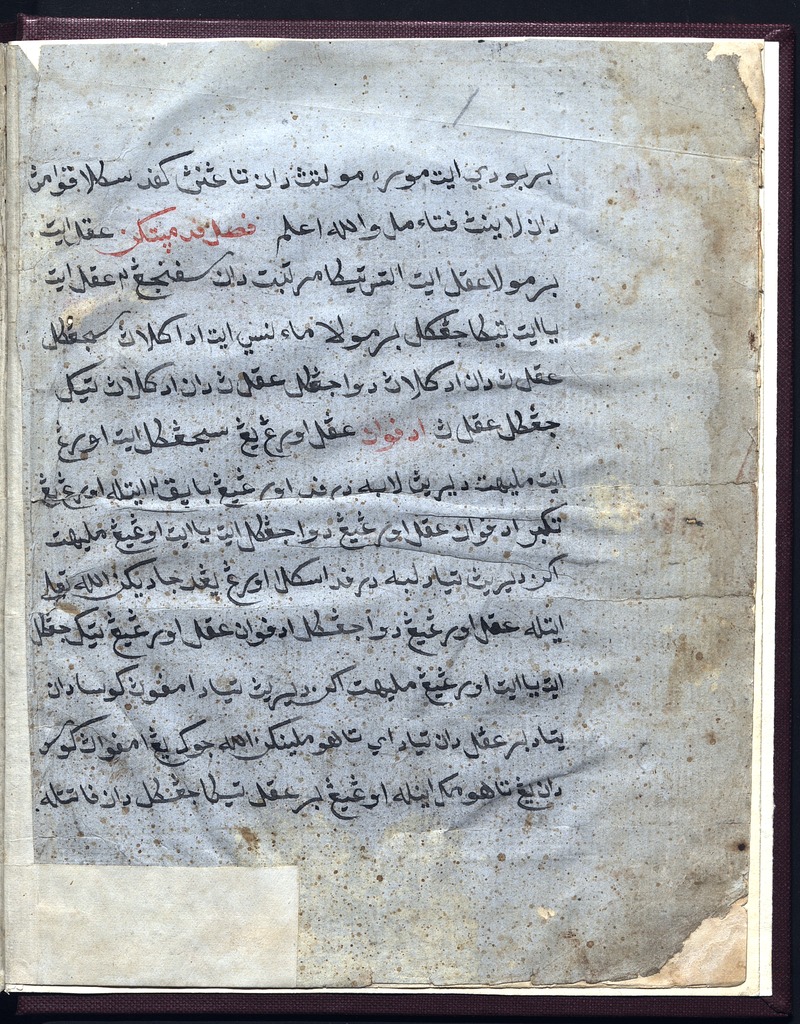 بربودي ايت موره مولتڽ دان تاڠنڽ كفد سكلا قوامڽ
دان لاينڽ فتاءمل والله اعلم فصل فد مپتاكن عقل ايت
برمولا عقل ايت اتس تيڬا مرتبت دان سفنجڠ٢ عقل ايت
يأايت تيڬا جڠكل برمولا ماءنسي ايت اد اكلاڽ سجڠكل
عقلڽ دان اد كلاڽ دوا جڠكل عقلڽ دان اد كلاڽ تيڬ
جڠكل عقلڽ ادفون عقل اورڠ يڠ سجڠكل ايت اورڠ
ايت مليهت ديريڽ لابه درفد اورڠ يڠ باپق٢ ايتله اورڠ يڠ
تكبر ادفون عقل اورڠ يڠ دوا جڠكل ايت يأايت اورڠ يڠ مليهت
اكن ديريڽ تياد لبه درفد سكلا اورڠ يڠ دجاديكن الله تعالى
ايتله عقل اورڠ يڠ دوا جڠكل ادفون عقل اورڠ يڠ تيڬ جڠكل
ايت يأايت اورڠ يڠ مليهت اكن ديريڽ تياد امفون كواسا دان
تياد بر عقل دان تياد اي تاهو ملينكن الله جوك يڠ امفوڽ كواس
دان يڠ تاهو مك ايتله اورڠ يڠ بر عقل تيڬا جڠكل دان فاتتله